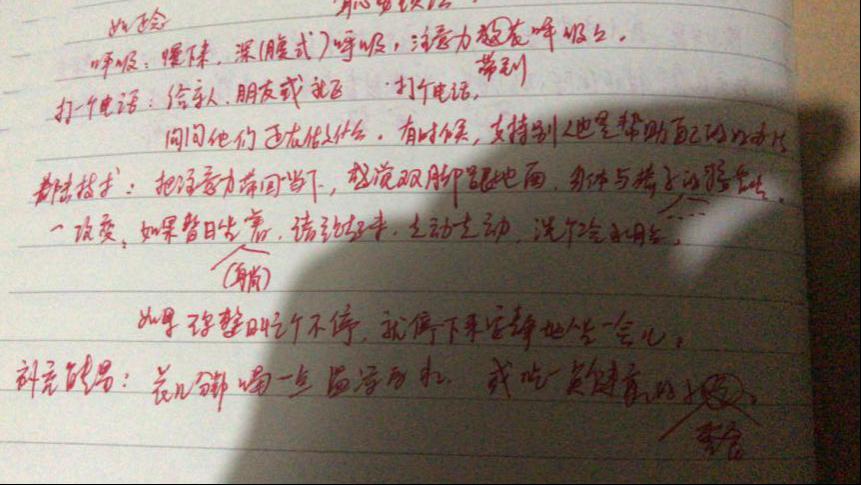 如正念
呼吸：慢下来，深(腹式)呼吸，注意力放在呼吸上。
带到
打个电话：给亲人、朋友或 打个电话，
问问他们正在做什么。有时候，支持别人也是帮助自己的好办法
着陆技术：把注意力带回当下，感觉双脚踩地面，身体与椅子的接触
一改变，如果整日坐着，请站起来，走动走动，洗个冷水脸。
(躺)
如果你整日忙个不停，就停下来安静地坐一会儿。
补充能量：花几分钟喝一点温凉的水，或吃一点健康的
零食